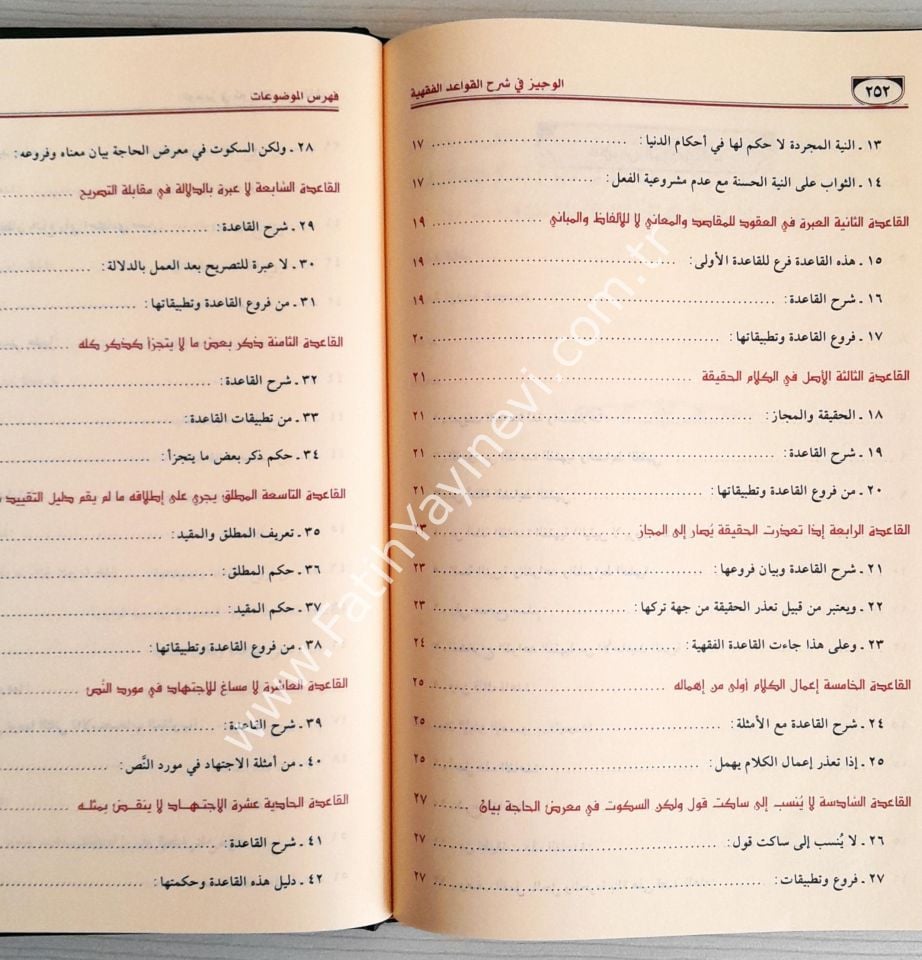 ٢٥٢
الوجيز في شرح القواعد الفقهية
١٣ ـ النية المجردة لا حكم لها في أحكام الدنيا: ١٧
١٤ ـ الثواب على النية الحسنة مع عدم مشروعية الفعل: ١٧
القاعدة الثانية العبرة في العقود للمقاصد والمعاني لا للألفاظ والمباني ١٩
١٥ ـ هذه القاعدة فرع للقاعدة الأولى: ١٩
١٦ ـ شرح القاعدة: ١٩
١٧ ـ فروع القاعدة وتطبيقاتها: ٢٠
القاعدة الثالثة الأصل في الكلام الحقيقة ٢١
١٨ ـ الحقيقة والمجاز: ٢١
١٩ ـ شرح القاعدة: ٢١
٢٠ ـ من فروع القاعدة وتطبيقاتها: ٢١
القاعدة الرابعة إذا تعذرت الحقيقة يُصار إلى المجاز ٢٣
٢١ ـ شرح القاعدة وبيان فروعها: ٢٣
٢٢ ـ ويعتبر من قبيل تعذر الحقيقة من جهة تركها: ٢٣
٢٣ ـ وعلى هذا جاءت القاعدة الفقهية: ٢٤
القاعدة الخامسة إعمال الكلام أولى من إهماله ٢٥
٢٤ ـ شرح القاعدة مع الأمثلة: ٢٥
٢٥ ـ إذا تعذر إعمال الكلام يهمل: ٢٥
القاعدة السادسة لا يُنسب إلى ساكت قول ولكن السكوت في معرض الحاجة بيان ٢٧
٢٦ ـ لا يُنسب إلى ساكت قول: ٢٧
٢٧ ـ فروع وتطبيقات: ٢٧
فهرس الموضوعات
٢٨ ـ ولكن السكوت في معرض الحاجة بيان معناه وفروعه:
القاعدة السابعة لا عبرة بالدلالة في مقابلة التصريح
٢٩ ـ شرح القاعدة:
٣٠ ـ لا عبرة للتصريح بعد العمل بالدلالة:
٣١ ـ من فروع القاعدة وتطبيقاتها:
القاعدة الثامنة ذكر بعض ما لا يتجزأ كذكر كله
٣٢ ـ شرح القاعدة:
٣٣ ـ من تطبيقات القاعدة:
٣٤ ـ حكم ذكر بعض ما يتجزأ:
القاعدة التاسعة المطلق يجري على إطلاقه ما لم يقم دليل التقييد
٣٥ ـ تعريف المطلق والمقيد:
٣٦ ـ حكم المطلق:
٣٧ ـ حكم المقيد:
٣٨ ـ من فروع القاعدة وتطبيقاتها:
القاعدة العاشرة لا مساغ للاجتهاد في مورد النَّص
٣٩ ـ شرح القاعدة:
٤٠ ـ من أمثلة الاجتهاد في مورد النَّص:
القاعدة الحادية عشرة الاجتهـاد لا ينقـض بمثلـه
٤١ ـ شرح القاعدة:
٤٢ ـ دليل هذه القاعدة وحكمتها:
www.FatihYayinevi.com.tr